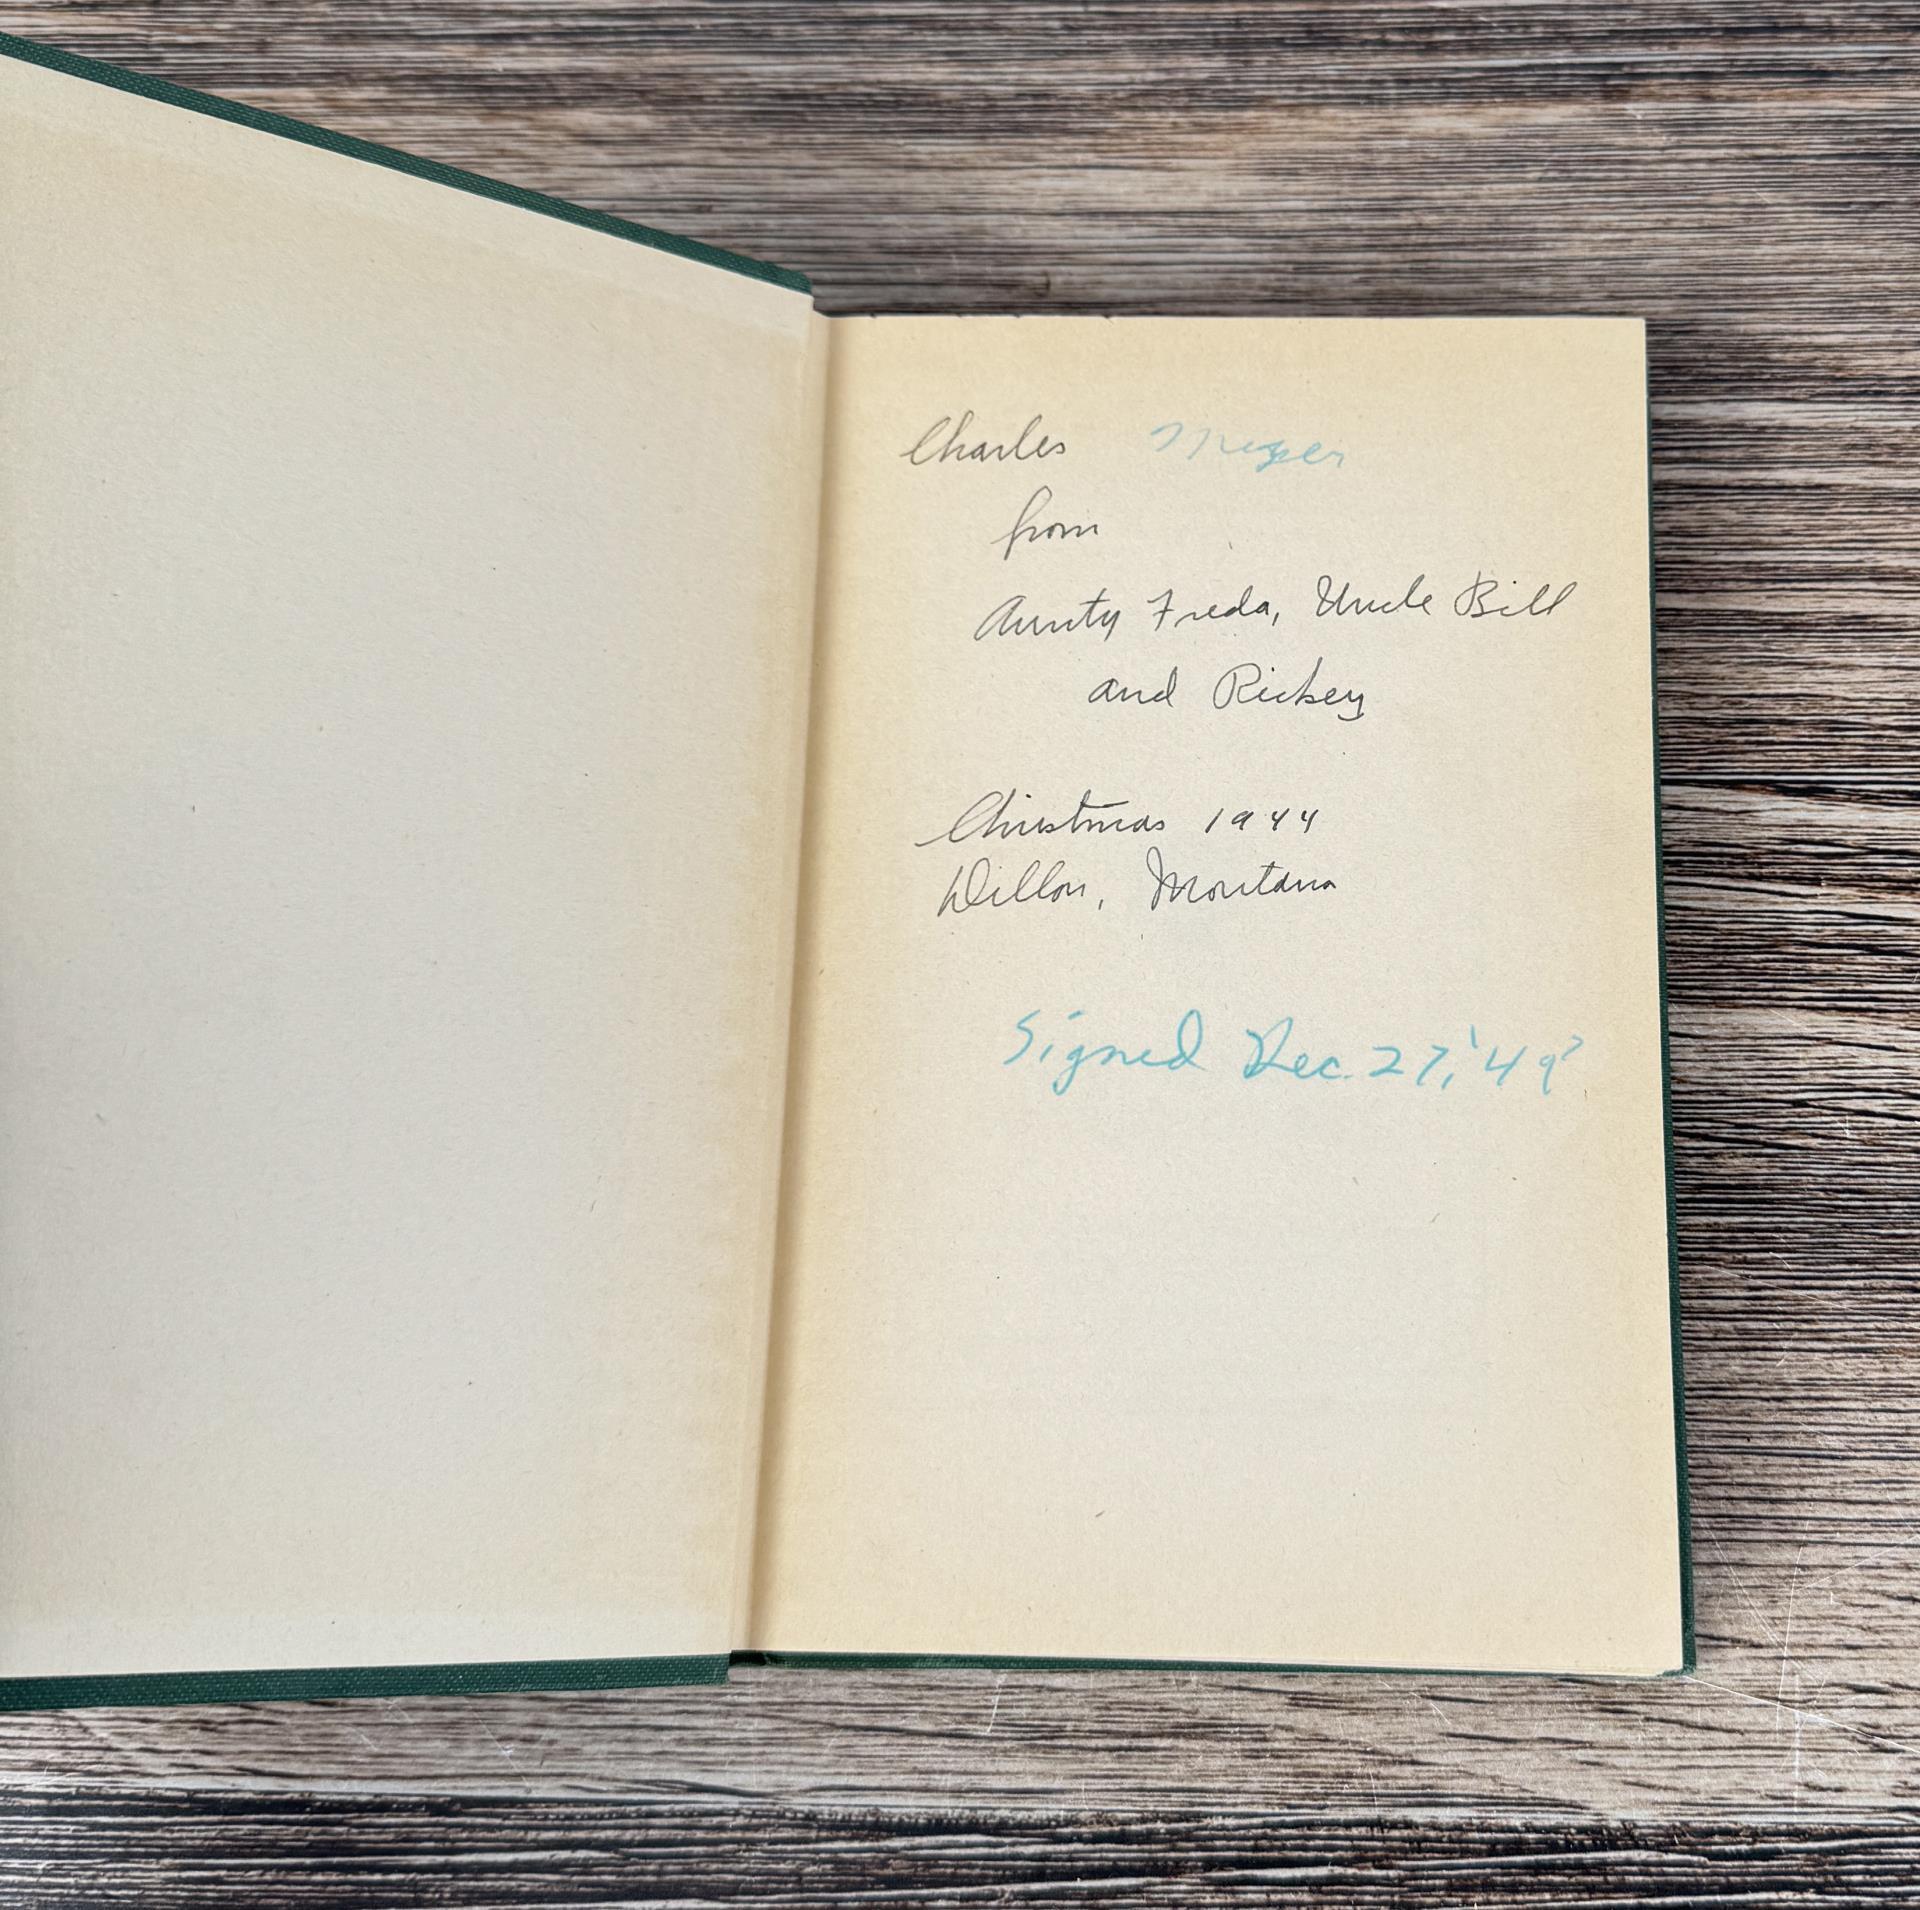 Charles Meyer
from
Aunty Freda, Uncle Bill
and Rickey
Christmas 1944
Dillon, Montana
Signed Dec. 27, '49'